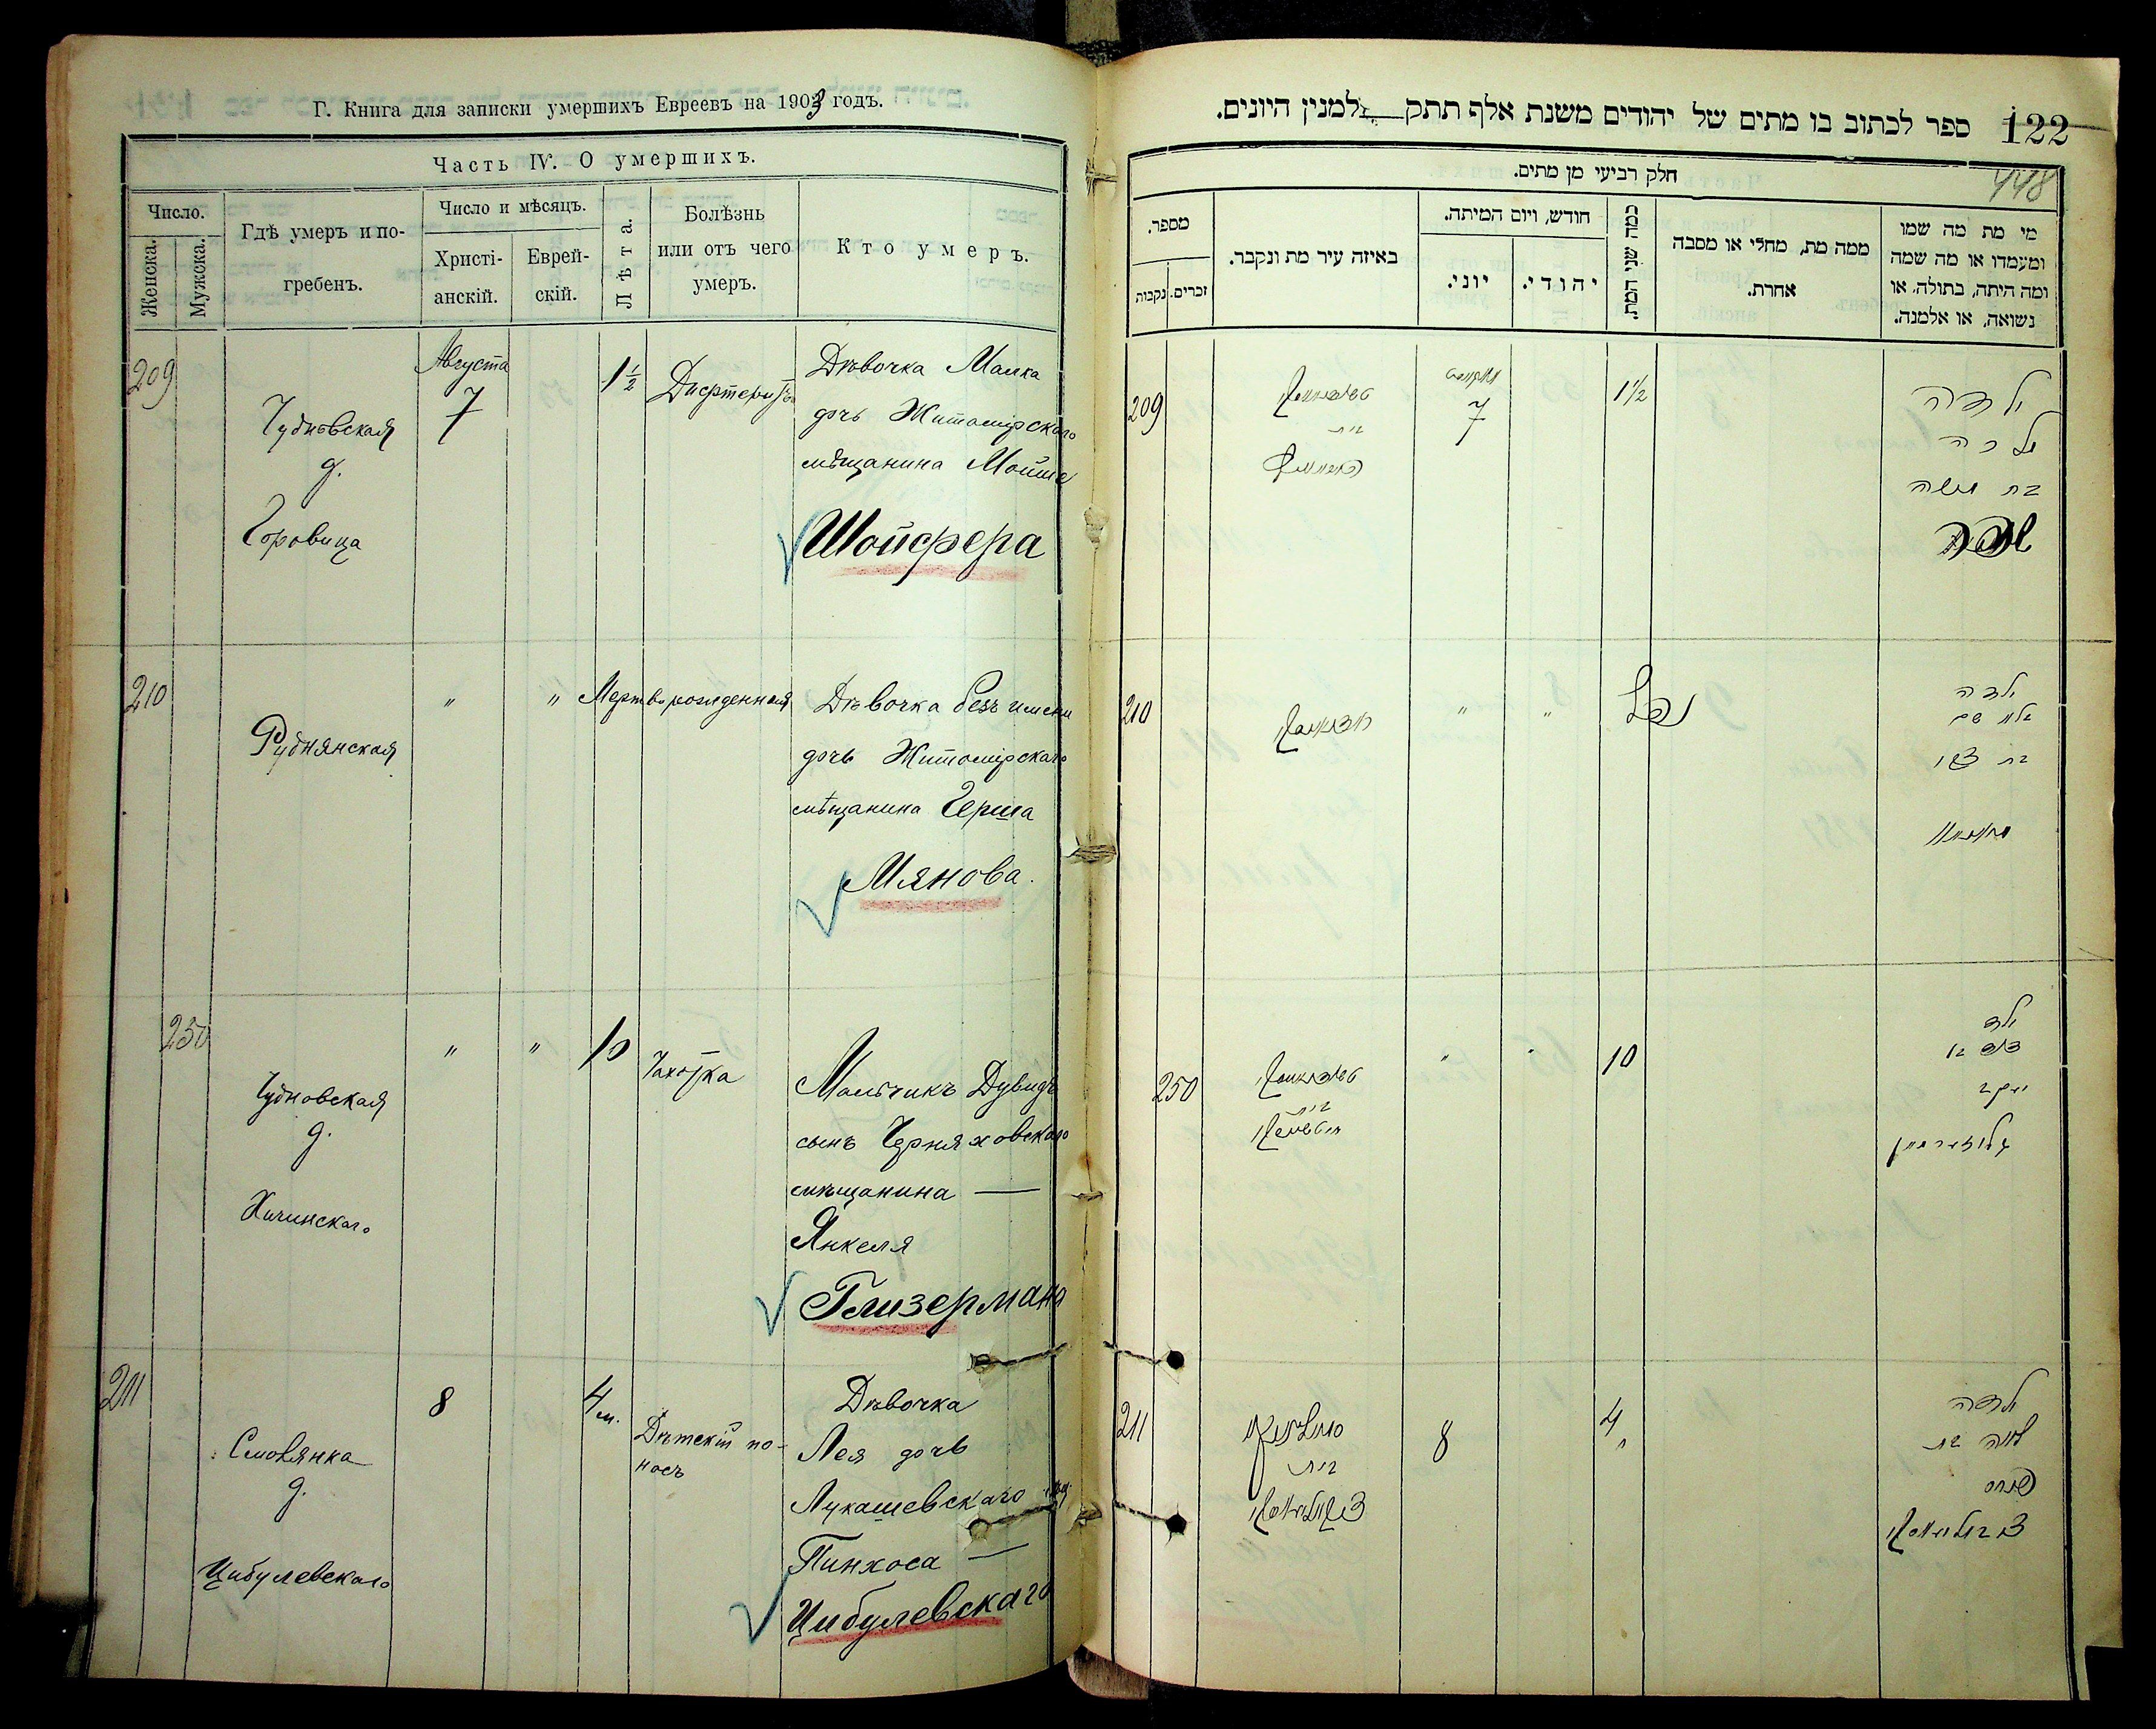 Г. Книга для записки умершихъ Евреевъ на 1903 годъ.
Часть IV. О умершихъ.
Число.
Женска.
Мужска.
Гдѣ умеръ и по-
гребенъ.
Число и мѣсяцъ.
Христі-
анскій.
Еврей-
скій.
Лѣта.
Болѣзнь
или отъ чего
умеръ.
Кто умеръ.
209
Чудновская
д.
Горовица
Августа
7
1 1/2
Дифтеритъ
Дѣвочка Малка
дочь Житомірскаго
мѣщанина Мойше
Шойфера
210
Руднянская
"
"
Мертворожденная
Дѣвочка безъ имени
дочь Житомірскаго
мѣщанина Герша
Мянова.
250
Чудновская
д.
Хичинскаго
"
"
10
Чахотка
Мальчикъ Дувидъ
сынъ Черняховскаго
мѣщанина —
Янкеля
Глизермана
211
Смолянка
д.
Цибулевскаго
8
4 м.
Дѣтскій по-
носъ
Дѣвочка
Лея дочь
Лукашевскаго мѣщ.
Пинхоса —
Цибулевскаго
122 ספר לכתוב בו מתים של יהודים משנת אלף תתק למנין היונים.
448
חלק רביעי מן מתים.
מספר.
נקבות
זכרים.
באיזה עיר מת ונקבר.
חודש, ויום המיתה.
יוני.
יהודי.
כמה שני המת.
ממה מת, מחלי או מסבה
אחרת.
מי מת מה שמו
ומעמדו או מה שמה
ומה היתה, בתולה, או
נשואה, או אלמנה.
209
בית
7
1 1/2
ילדה
מלכה
בת משה
210
"
"
נפל
ילדה
בלי שם
בת צבי
250
בית
"
"
10
ילד
דוד בן
יעקב
גליזערמאן
211
בית
8
4
ילדה
לאה בת
פנחס